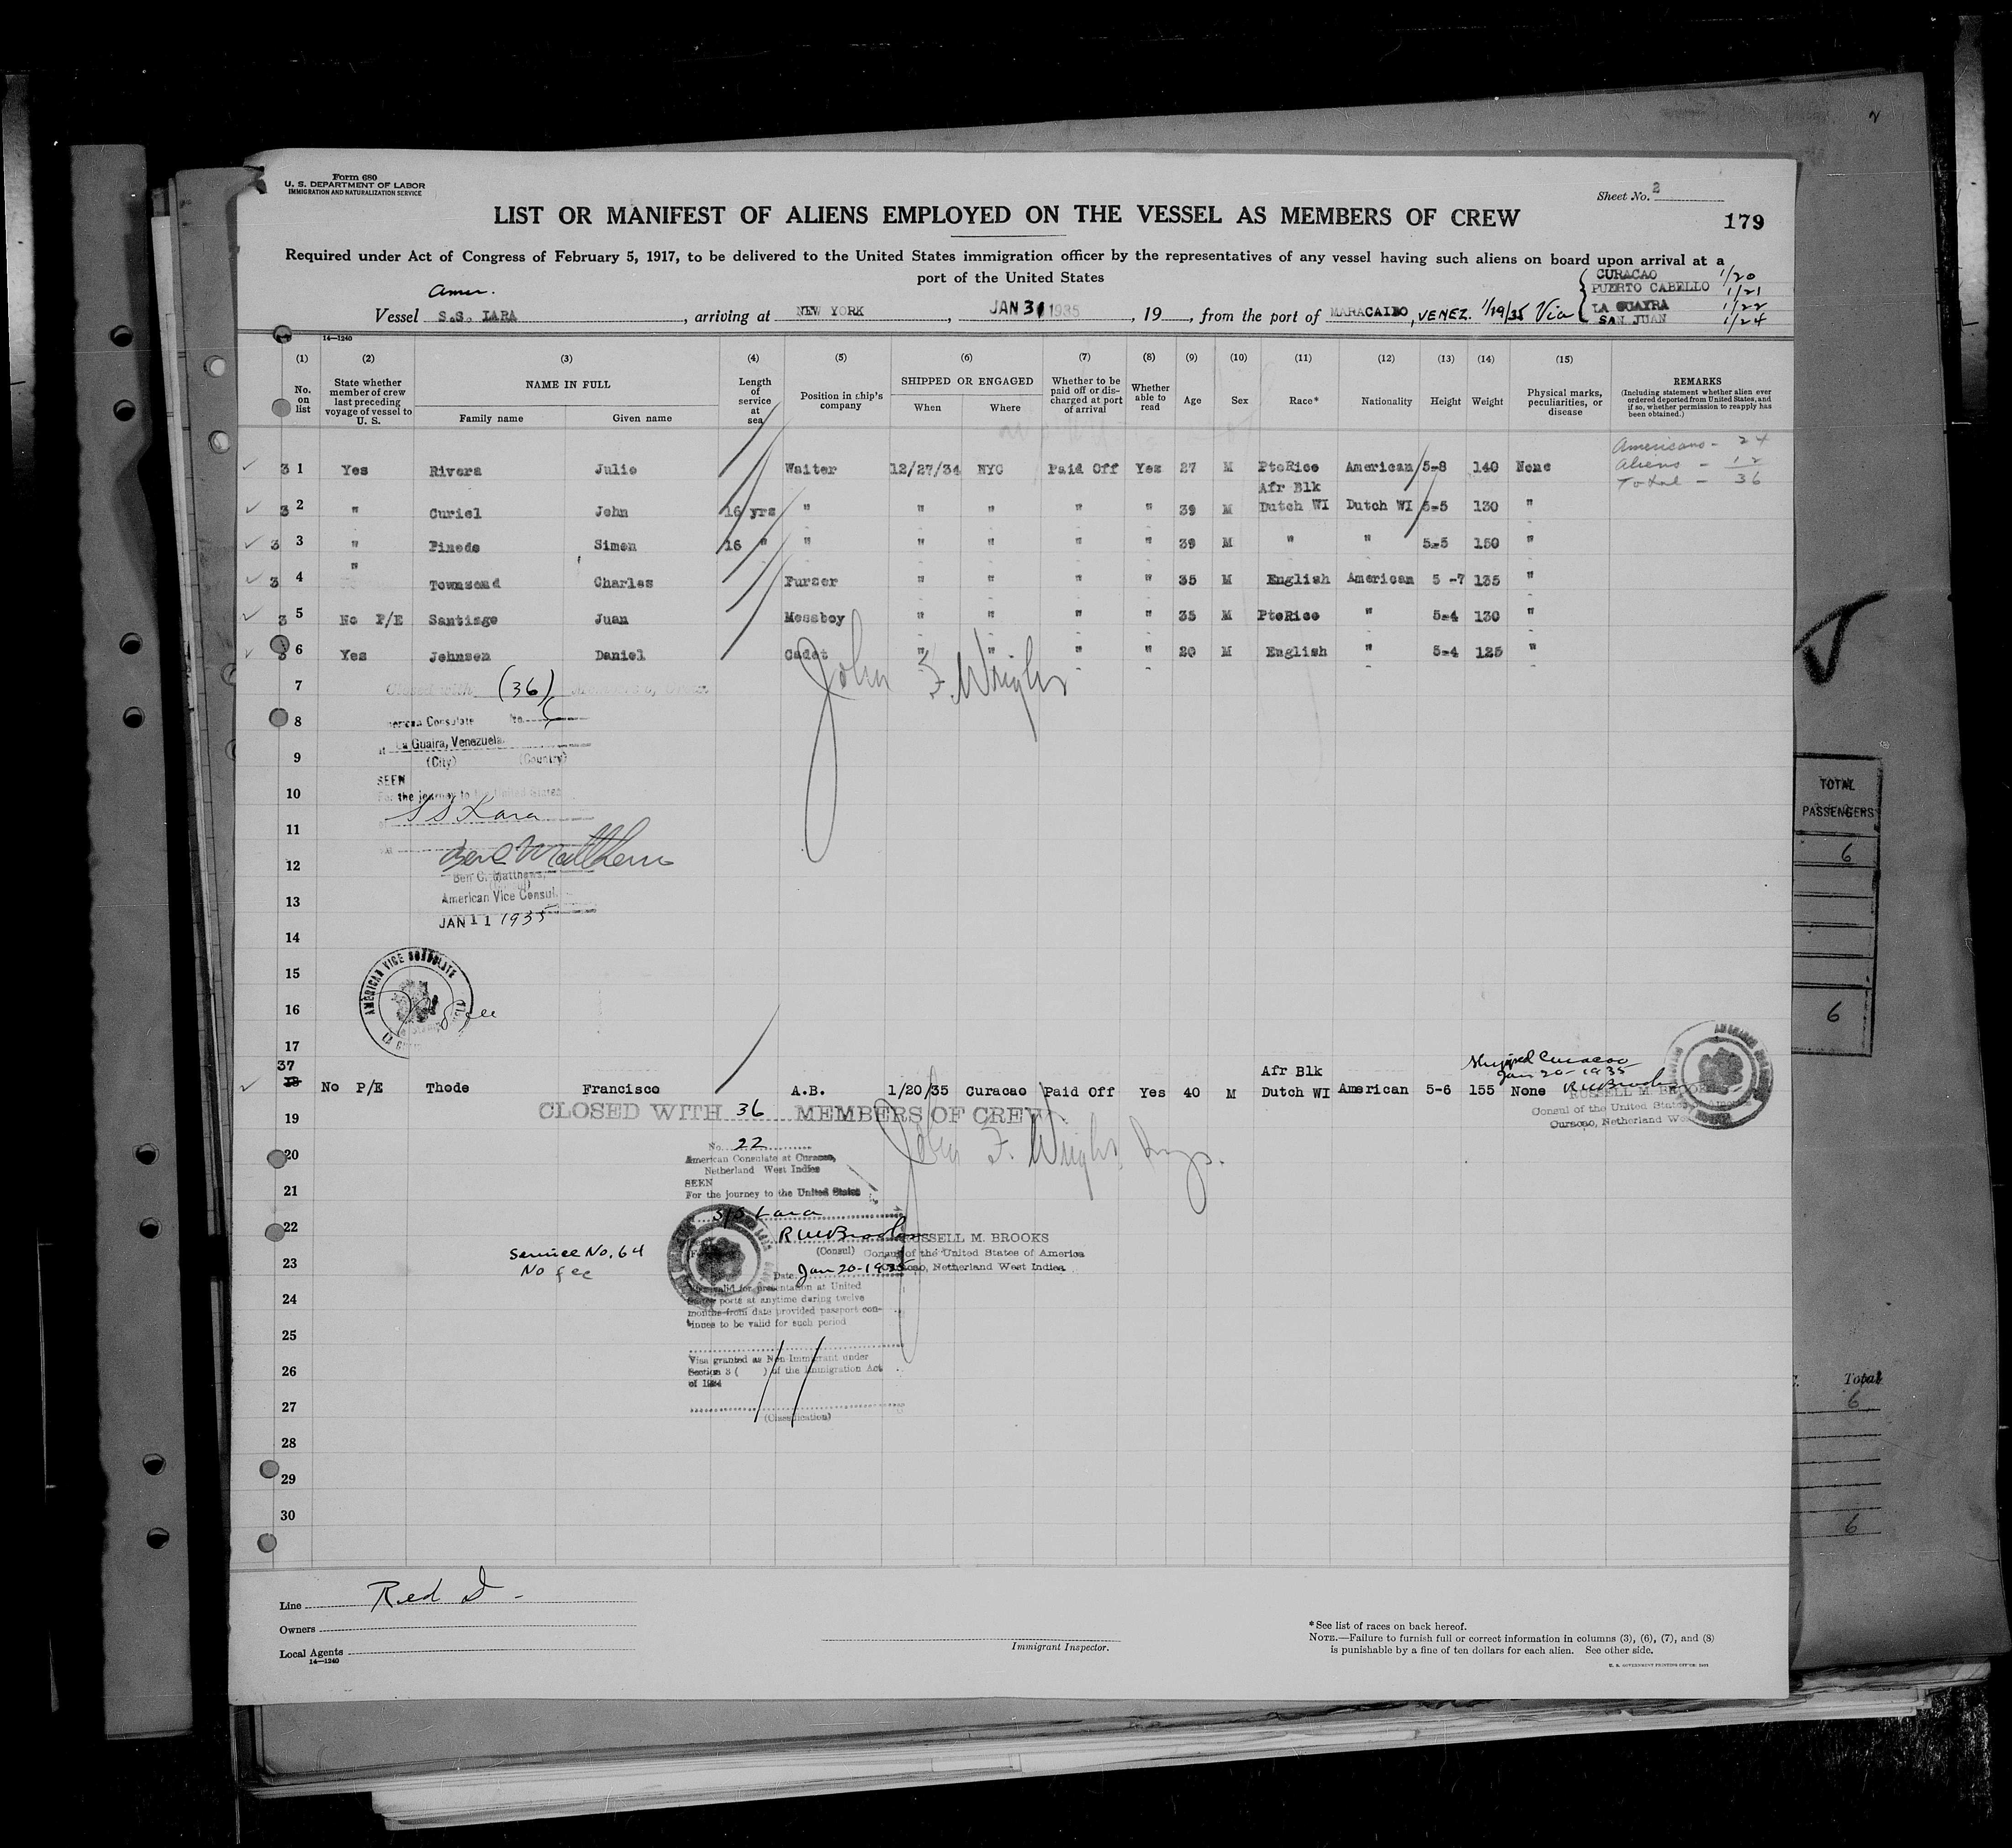 Form 680
U. S. DEPARTMENT OF LABOR
IMMIGRATION AND NATURALIZATION SERVICE
Sheet No. 2
179
LIST OR MANIFEST OF ALIENS EMPLOYED ON THE VESSEL AS MEMBERS OF CREW
Required under Act of Congress of February 5, 1917, to be delivered to the United States immigration officer by the representatives of any vessel having such aliens on board upon arrival at a
port of the United States
Amer.
Vessel S.S. LARA, arriving at NEW YORK, JAN 31 1935, 19, from the port of MARACAIBO, VENEZ. 1/19/35 Via
CURACAO 1/20
PUERTO CABELLO 1/21
LA GUAYRA 1/22
SAN JUAN 1/24
14—1240
(1) (2) (3) (4) (5) (6) (7) (8) (9) (10) (11) (12) (13) (14) (15)
No. on list
State whether member of crew last preceding voyage of vessel to U. S.
NAME IN FULL
Family name
Given name
Length of service at sea
Position in ship's company
SHIPPED OR ENGAGED
When
Where
Whether to be paid off or discharged at port of arrival
Whether able to read
Age
Sex
Race*
Nationality
Height
Weight
Physical marks, peculiarities, or disease
REMARKS
(Including statement whether alien ever ordered deported from United States, and if so, whether permission to reapply has been obtained.)
Americans - 24
Aliens - 12
Total - 36
3 1 Yes Rivera Julio Waiter 12/27/34 NYC Paid Off Yes 27 M PtoRico American 5-8 140 None
Afr Blk
3 2 " Curiel John 16 yrs " " " " " 39 M Dutch WI Dutch WI 5-5 130 "
3 3 " Pinedo Simon 16 " " " " " " 39 M " " 5-5 150 "
3 4 " Townsend Charles Purser " " " " 35 M English American 5-7 135 "
3 5 No P/E Santiago Juan Messboy " " " " 35 M PtoRico " 5-4 130 "
3 6 Yes Johnsen Daniel Cadet " " " " 20 M English " 5-4 125 "
John F. Wright
7 Closed with (36) Members of Crew
8 American Consulate No.
at La Guaira, Venezuela
9 (City) (Country)
SEEN
10 For the journey to the United States
SS Lara
11
12 Ben C. Matthews
Ben C. Matthews,
American Vice Consul
13
JAN 11 1935
14
15
AMERICAN VICE CONSULATE
16
17
37
18 No P/E Thode Francisco A.B. 1/20/35 Curacao Paid Off Yes 40 M Afr Blk Dutch WI American 5-6 155 None
Shipped Curacao
Jan 20-1935
RMBrooks
RUSSELL M. BROOKS
Consul of the United States of America
Curacao, Netherland West
CLOSED WITH 36 MEMBERS OF CREW
19
John F. Wright Insp.
No. 22
20 American Consulate at Curacao,
Netherland West Indies
SEEN
21 For the journey to the United States
S/S Lara
22
RMBrooks
RUSSELL M. BROOKS
(Consul) Consul of the United States of America
Curacao, Netherland West Indies
Service No. 64
No fee
23
Date Jan 20-1935
Visa valid for presentation at United
24 States ports at anytime during twelve
months from date provided passport con-
tinues to be valid for such period
25
Visa granted as Non Immigrant under
26 Section 3 ( ) of the Immigration Act
of 1924
27
(Classification)
28
29
30
Line Red D
Owners
Local Agents
14—1240
Immigrant Inspector.
*See list of races on back hereof.
NOTE.—Failure to furnish full or correct information in columns (3), (6), (7), and (8)
is punishable by a fine of ten dollars for each alien. See other side.
TOTAL
PASSENGERS
6
6
Total
6
6